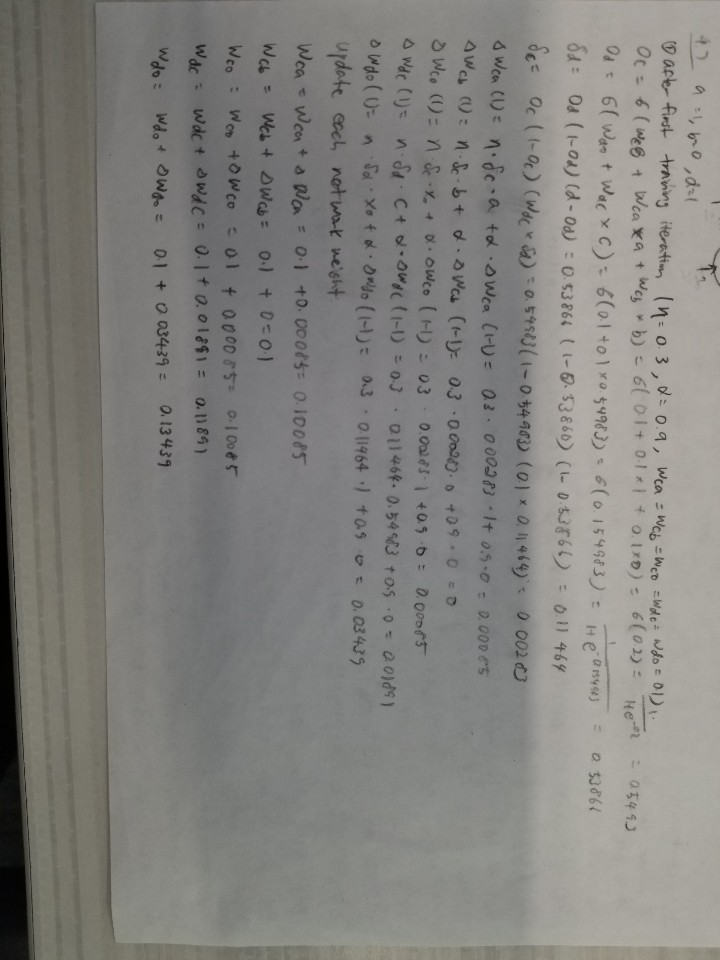 4.7 a=1, b=0, d=1
① after first training iteration (η=0.3, α=0.9, Wca=Wcb=Wco=Wdc=Wdo=0.1).
Oc = 6(Wco + Wca×a + Wcb×b) = 6(0.1+0.1×1+0.1×0) = 6(0.2) = 1/1+e^-0.2 = 0.5498
Od = 6(Wdo + Wdc×c) = 6(0.1+0.1×0.54983) = 6(0.154983) = 1/1+e^-0.154983 = 0.53866
δd = Od(1-Od)(d-Od) = 0.53866(1-0.53866)(1-0.53866) = 0.11464
δc = Oc(1-Oc)(Wdc×δd) = 0.54983(1-0.54983)(0.1×0.11464) = 0.00283
ΔWca(1) = η·δc·a + α·ΔWca(1-1) = 0.3·0.00283·1+0.9·0 = 0.00085
ΔWcb(1) = η·δc·b + α·ΔWcb(1-1) = 0.3·0.00283·0+0.9·0 = 0
ΔWco(1) = η·δc·x₀ + α·ΔWco(1-1) = 0.3·0.00283·1+0.9·0 = 0.00085
ΔWdc(1) = η·δd·c + α·ΔWdc(1-1) = 0.3·0.11464·0.54983+0.9·0 = 0.01891
ΔWdo(1) = η·δd·x₀ + α·ΔWdo(1-1) = 0.3·0.11464·1+0.9·0 = 0.03439
update each network weight
Wca = Wca + ΔWca = 0.1+0.00085 = 0.10085
Wcb = Wcb + ΔWcb = 0.1+0=0.1
Wco = Wco + ΔWco = 0.1+0.00085 = 0.10085
Wdc = Wdc + ΔWdc = 0.1+0.01891 = 0.11891
Wdo = Wdo + ΔWdo = 0.1+0.03439 = 0.13439